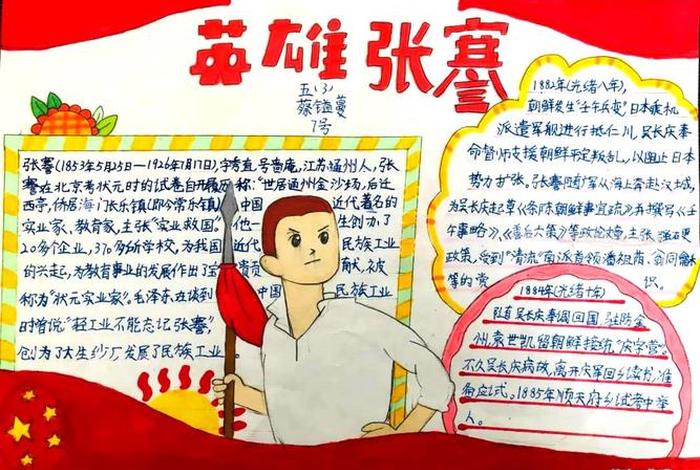 英雄张謇
五(3)
蔡镒蔓
7号
张謇(1853年5月25日—1926年7月17日),字季直,号啬庵,江苏通州人,张
謇在北京考状元时的试卷自开履历称:"世居通州金沙场,后迁
西亭,侨居海门长乐镇(即今常乐镇) 中国 近代著名的
实业家、教育家,主张"实业救国"。他一 生创办了
20多个企业,370多所学校,为我国 近代 民族工业
的兴起,为教育事业的发展作出了宝 贵贡 献,被
称为"状元实业家"。毛泽东在谈到 中国 民族工业
时曾说:"轻工业不能忘记张謇"
创办了大生纱厂发展了民族工业
1882年(光绪八年),
朝鲜发生"壬午兵变",日本乘机
派遣军舰进行抵仁川,吴长庆奉
命督师支援朝鲜平定叛乱,以阻止日本
势力扩张。张謇随庆军从海上奔赴汉城,
为吴长庆起草《条陈朝鲜事宜疏》,并撰写《壬
午事略》、《善后六策》等政论文章,主张强硬
政策,受到"清流"南派首领潘祖荫、翁同龢
等的赏 识。
1884年(光绪十年)
随吴长庆奉调回国,驻防金
州,袁世凯留朝鲜接统"庆字营"。
不久吴长庆病故,离开庆军回乡读书,准
备应试。1885年顺天府乡试考中举
人。